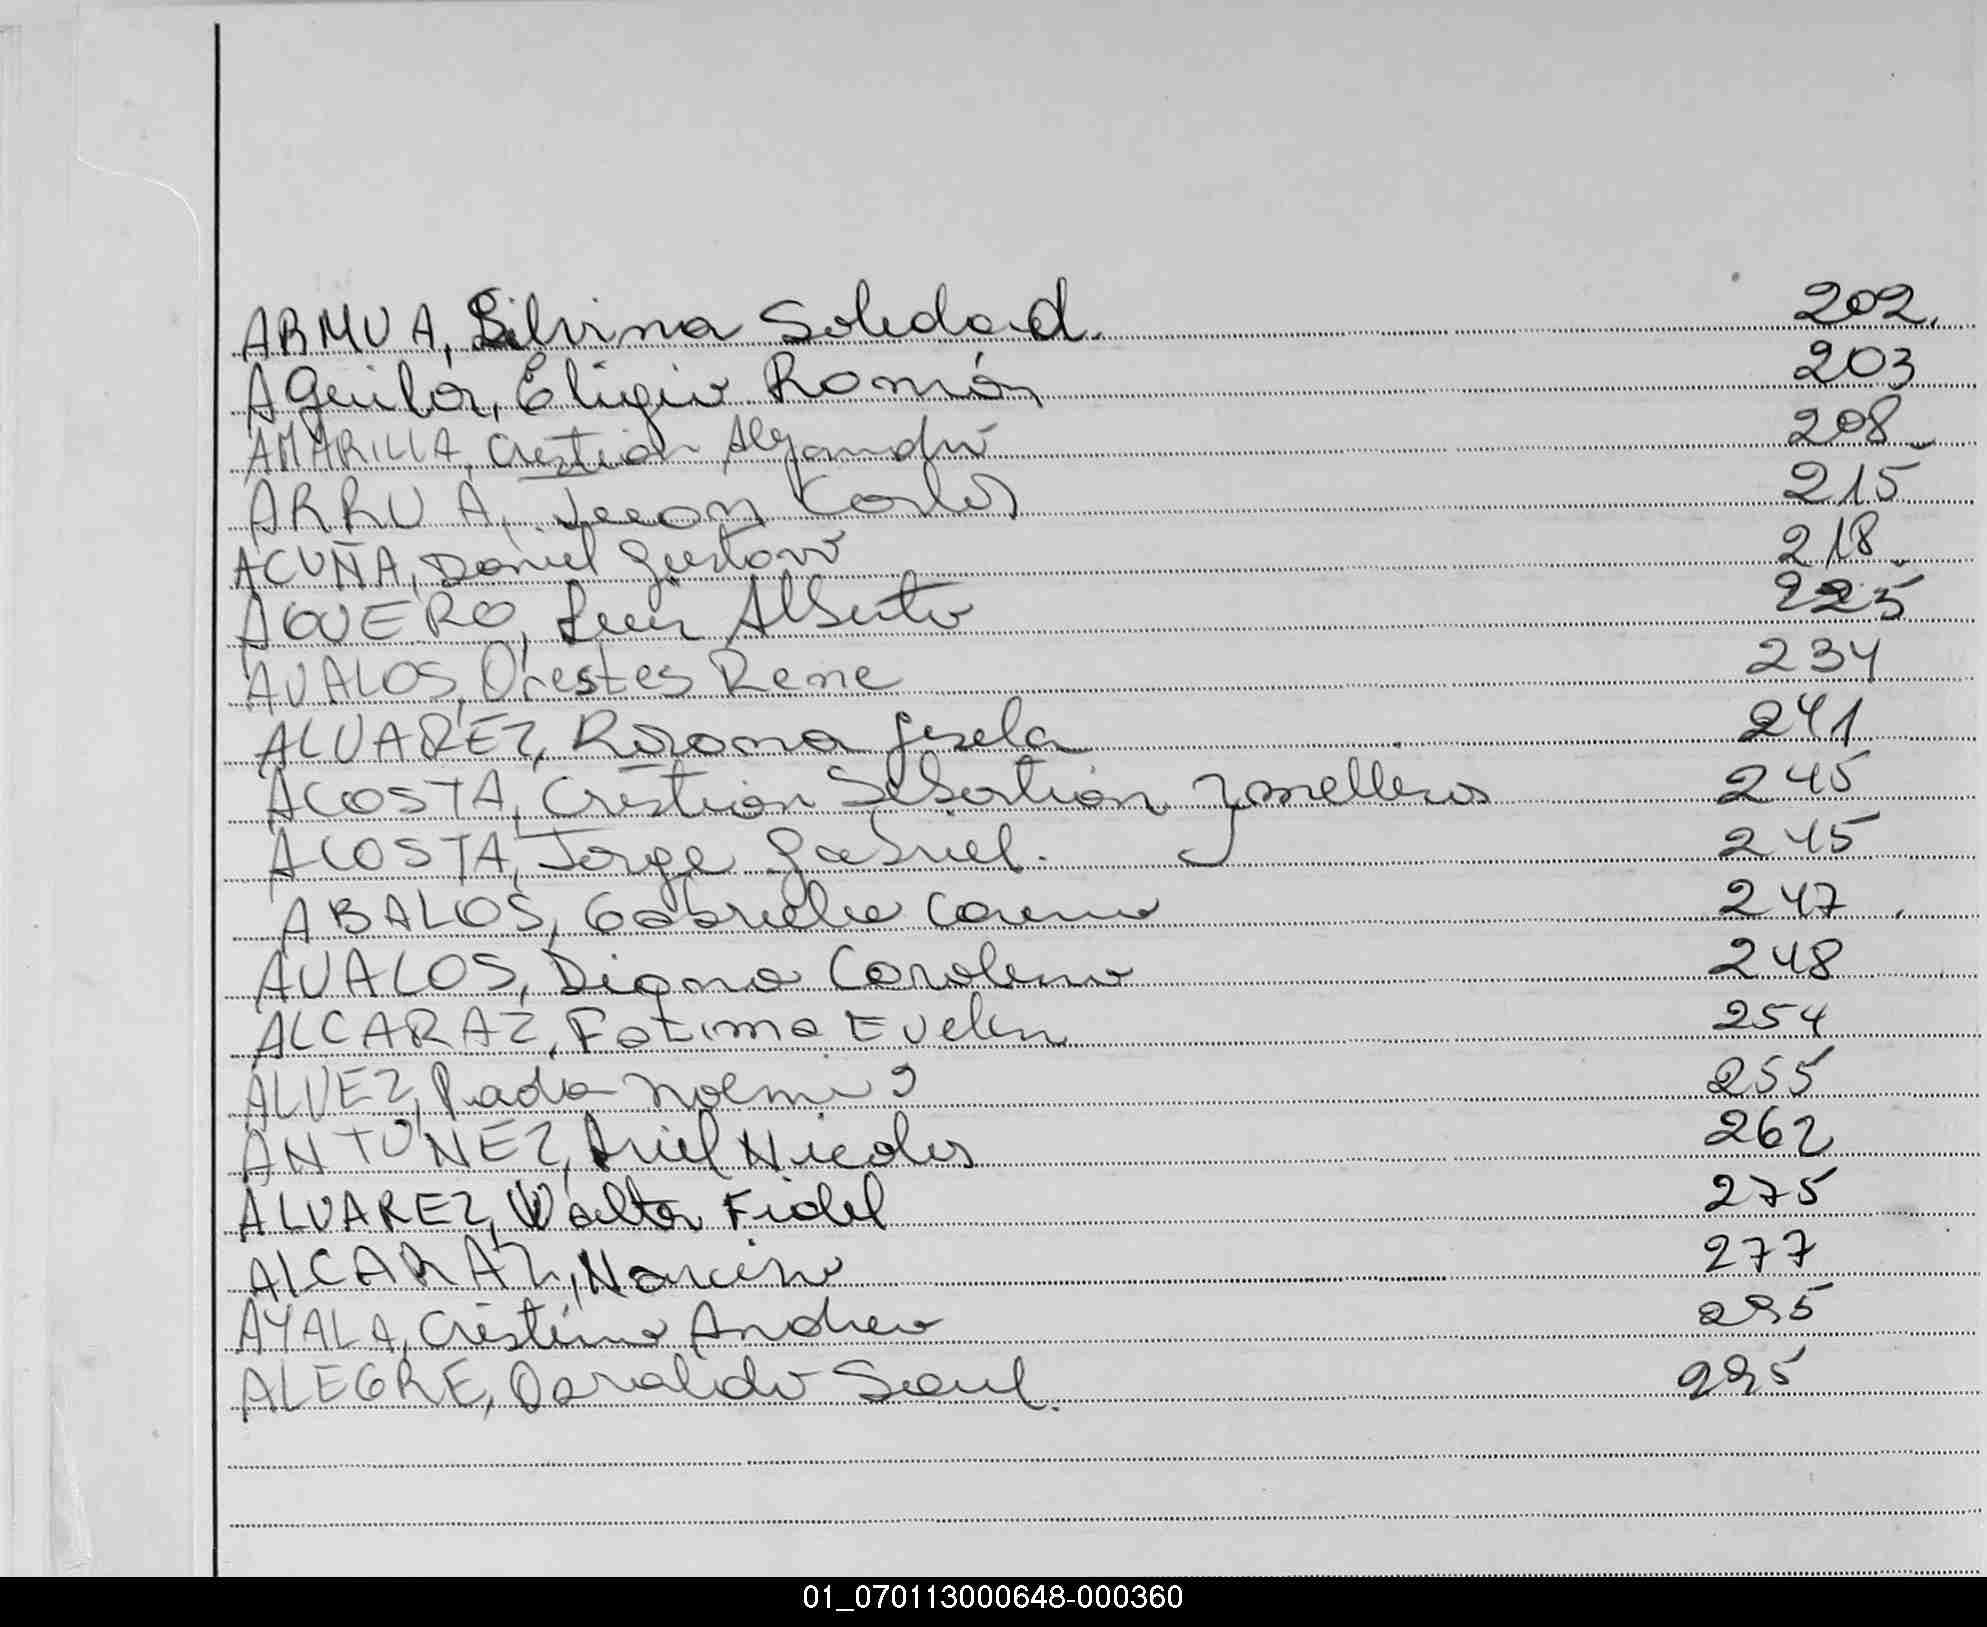 ARMUA, Silvina Soledad. 202.
Aguilar, Eligio Román 203
AMARILLA, Cristian Alejandro 208
ARRUA, Juan Carlos 215
ACUÑA, Daniel Gustavo 218
AGUERO, Luis Alberto 225
AVALOS, Orestes Rene 234
ALVAREZ, Rosana Gisela 241
ACOSTA, Cristian Sebastián y mellizos 245
ACOSTA, Jorge Gabriel. 245
ABALOS, Gabriela 247
AVALOS, Digna Carolina 248
ALCARAZ, Fatima Evelin 254
ALVEZ, Noemi 255
ANTUNEZ, Ariel Nicolas 262
ALVAREZ, Walter Fidel 275
ALCARAZ, Narciso 277
AYALA, Cristina Andrea 295
ALEGRE, Osvaldo Saul. 295
01_070113000648-000360